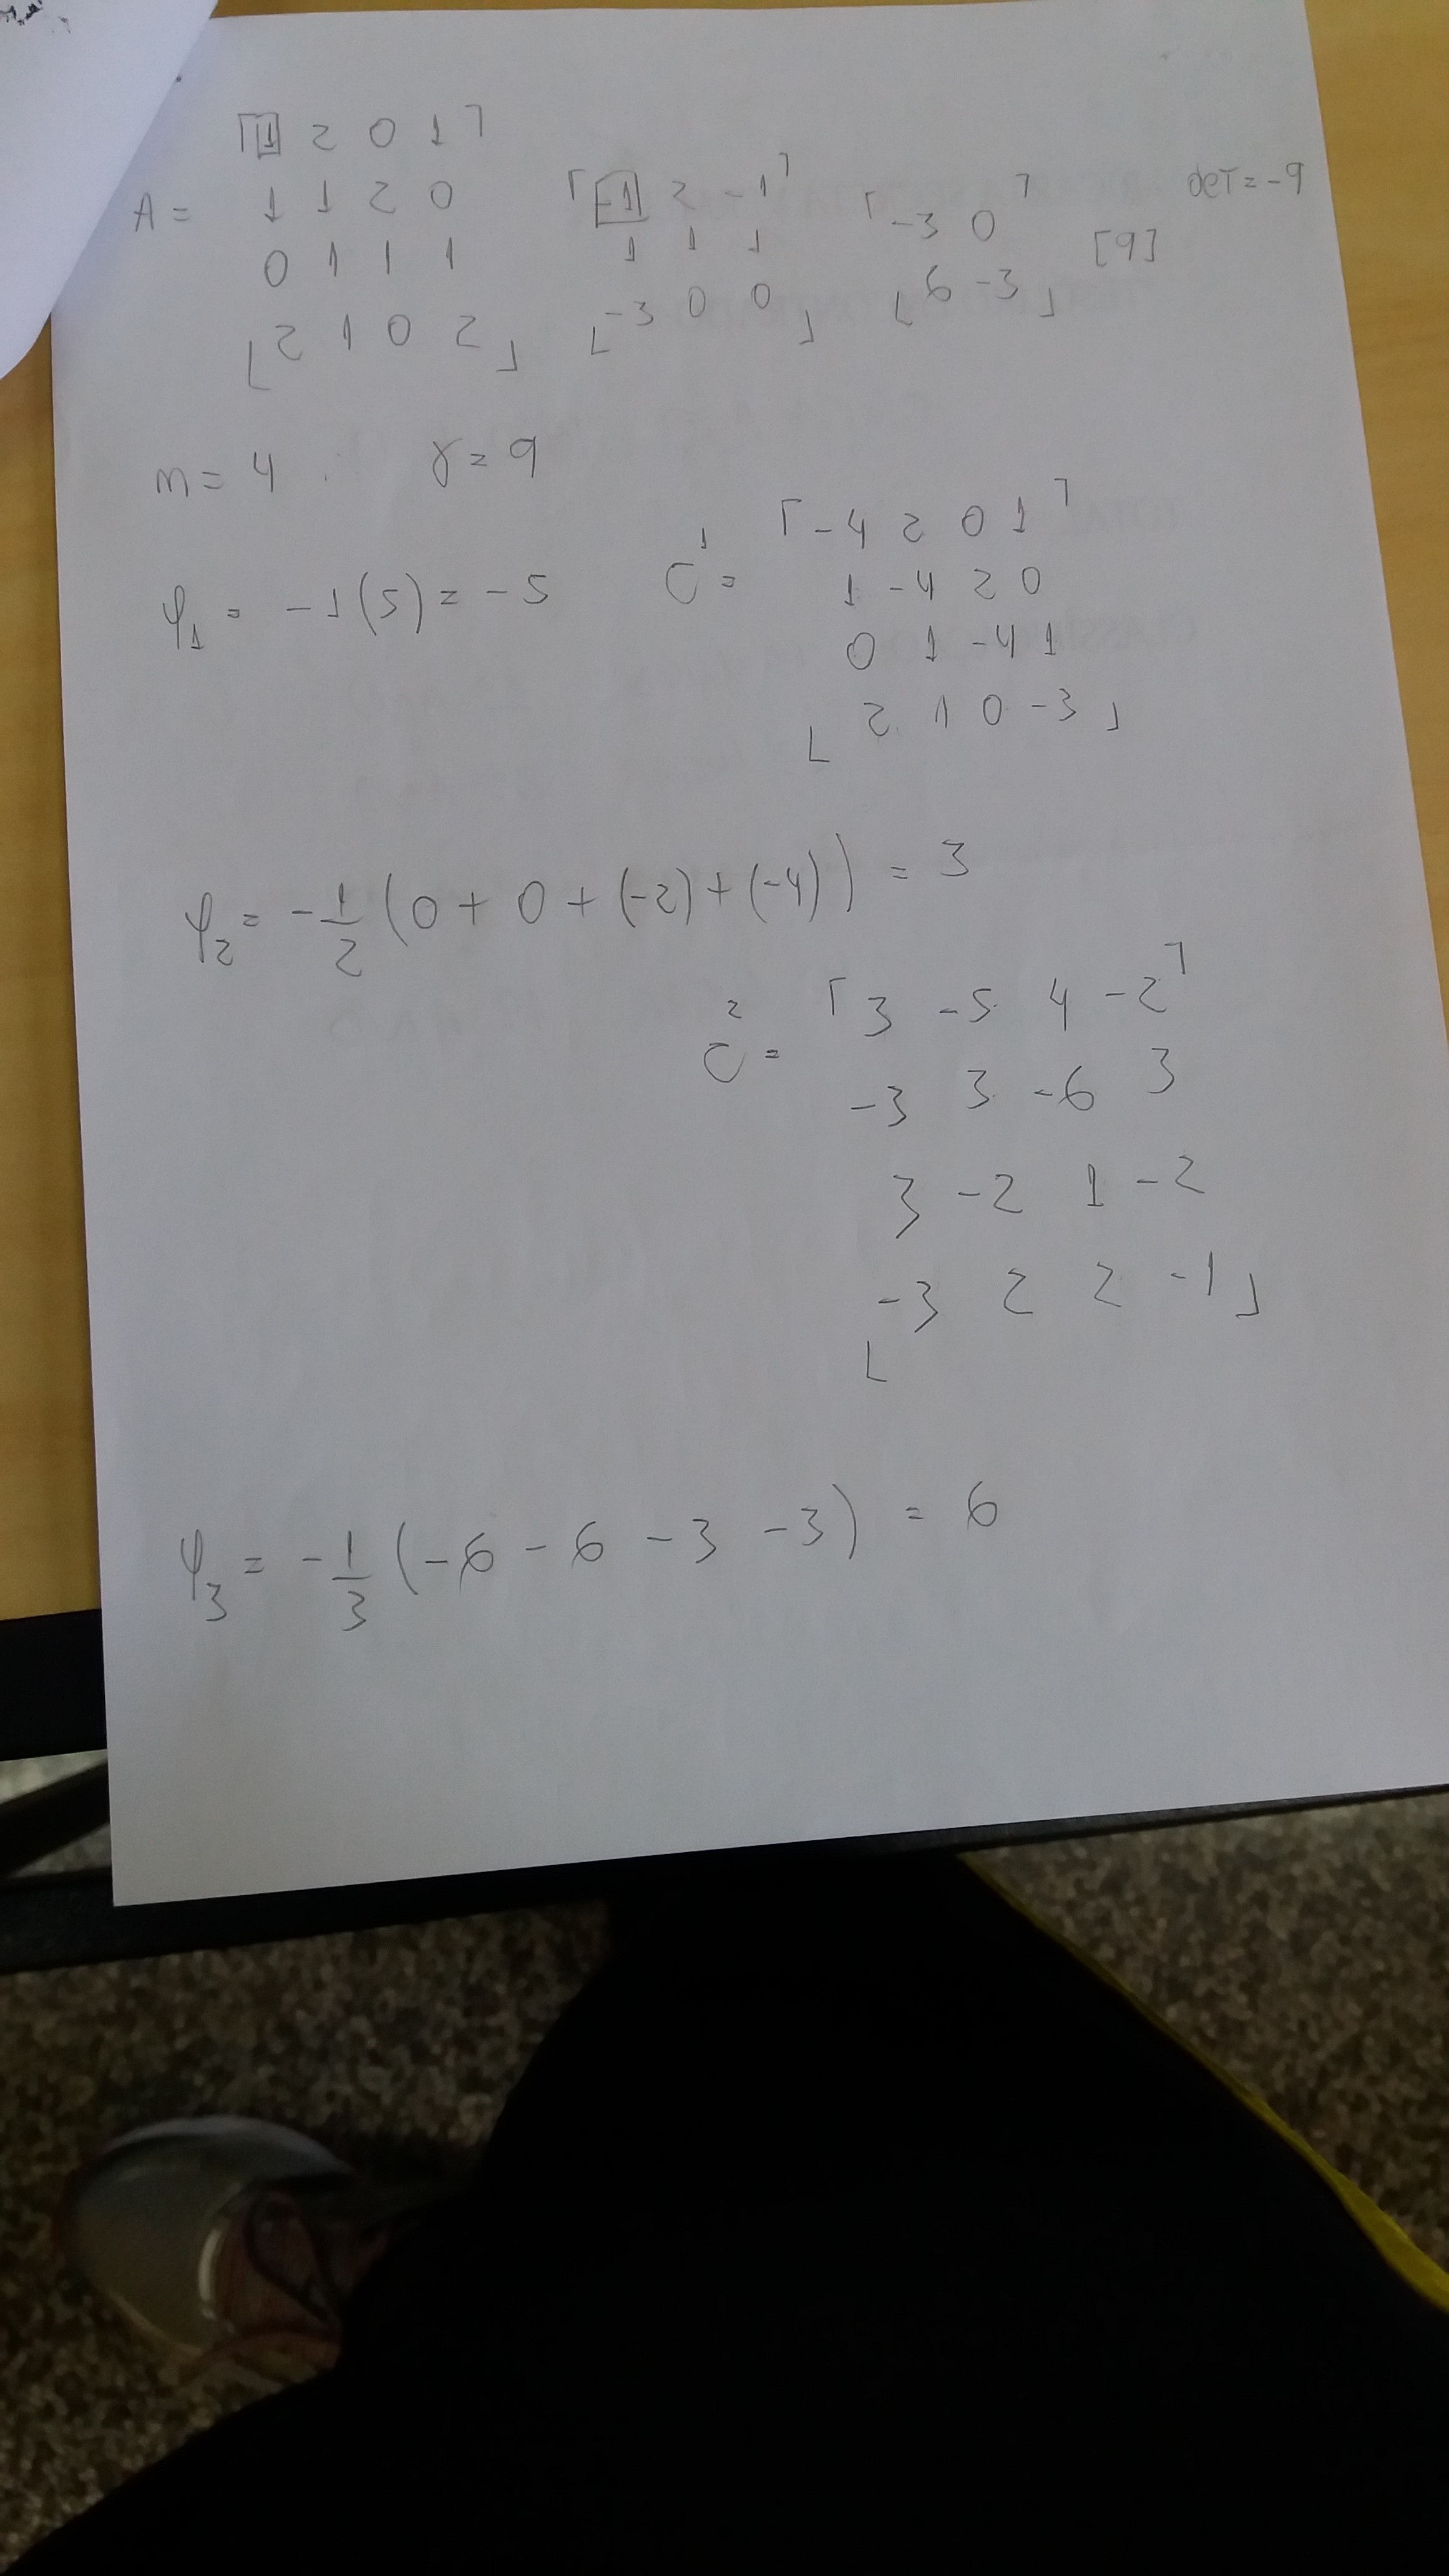 A = ⎡ 1 2 0 1 ⎤
1 1 2 0
0 1 1 1
⎣ 2 1 0 2 ⎦
⎡ -1 2 -1 ⎤
1 1 1
⎣ -3 0 0 ⎦
⎡ -3 0 ⎤
⎣ 6 -3 ⎦
[9]
DET = -9
m = 4 γ = 9
φ₁ = -1(5) = -5
C¹ = ⎡ -4 2 0 1 ⎤
1 -4 2 0
0 1 -4 1
⎣ 2 1 0 -3 ⎦
φ₂ = -1/2 (0 + 0 + (-2) + (-4)) = 3
C² = ⎡ 3 -5 4 -2 ⎤
-3 3 -6 3
3 -2 1 -2
⎣ -3 2 2 -1 ⎦
φ₃ = -1/3 (-6 - 6 - 3 - 3) = 6